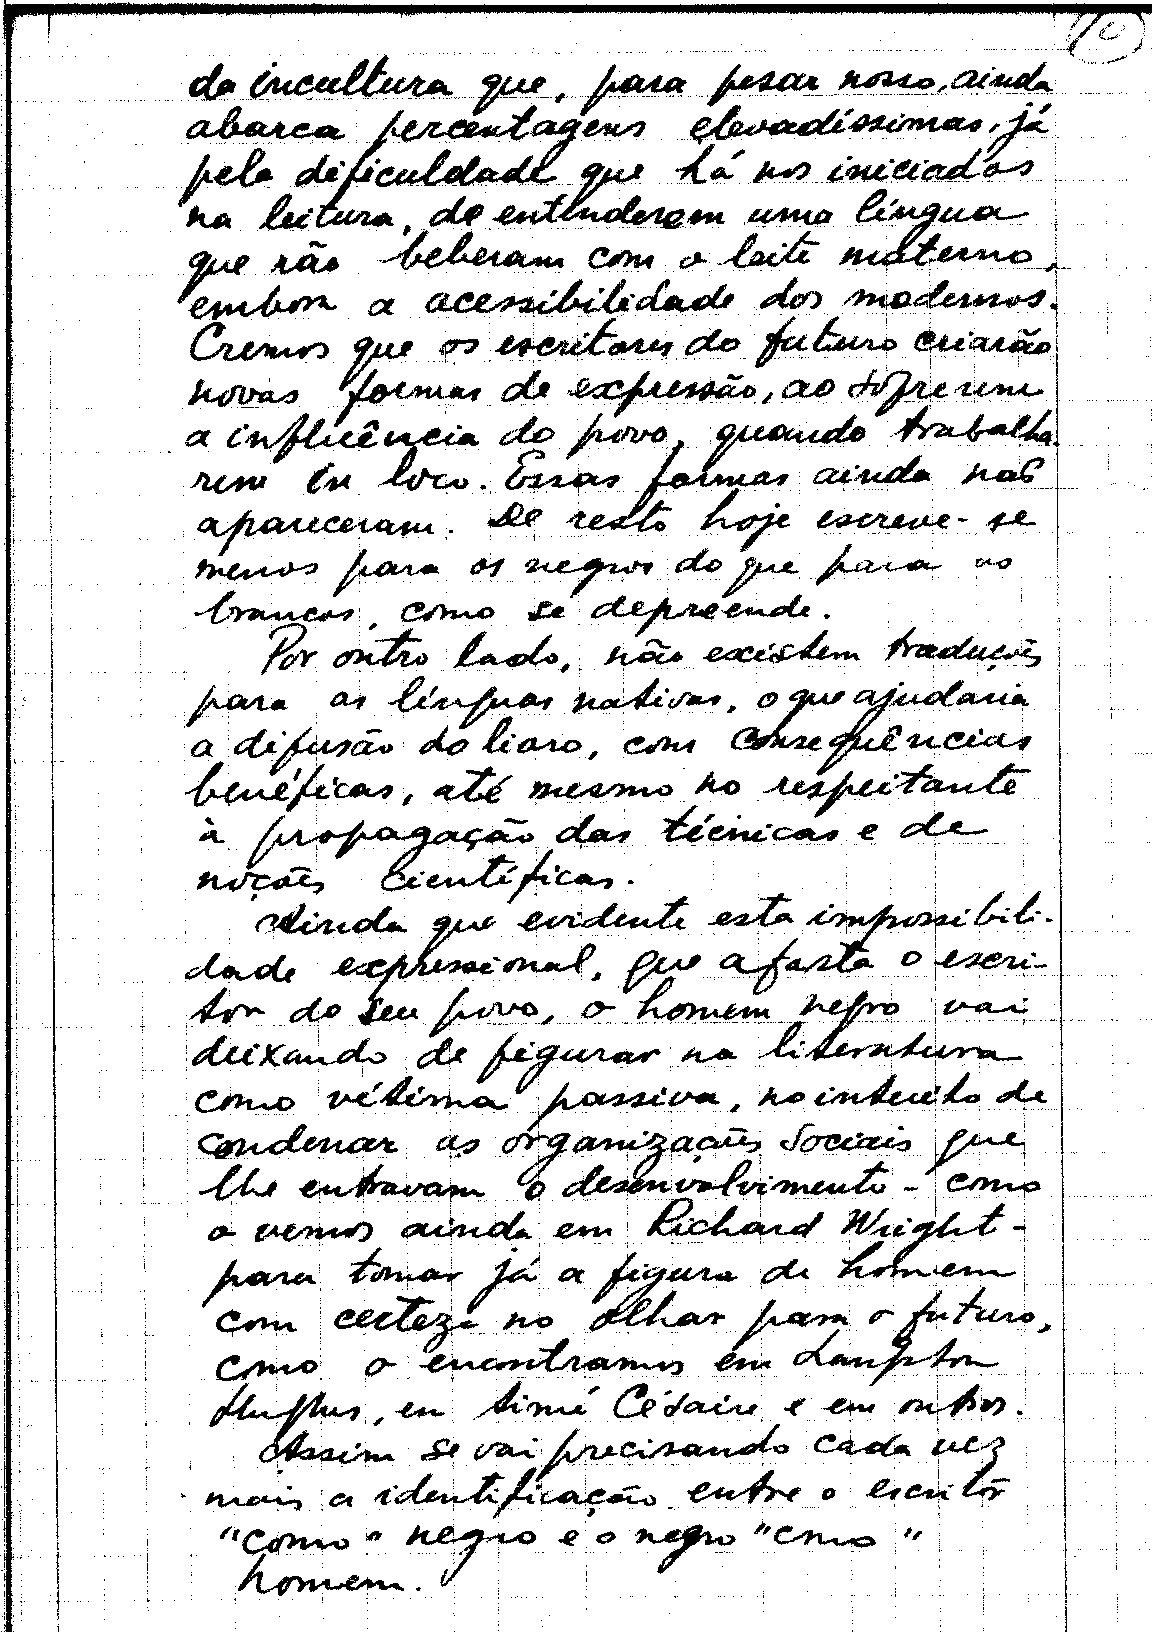 da incultura que, para pesar nosso, ainda
abarca percentagens elevadíssimas, já
pela dificuldade que há nos iniciados
na leitura, de entenderem uma língua
que não beberam com o leite materno,
embora a acessibilidade dos modernos.
Cremos que os escritores do futuro criarão
novas formas de expressão, ao sofrerem
a influência do povo, quando trabalha-
rem in loco. Essas formas ainda não
apareceram. De resto hoje escreve-se
menos para os negros do que para os
brancos, como se depreende.
Por outro lado, não existem traduções
para as línguas nativas, o que ajudaria
a difusão do livro, com consequências
benéficas, até mesmo no respeitante
à propagação das técnicas e de
noções científicas.
Ainda que evidente esta impossibili-
dade expressional, que afasta o escri-
tor do seu povo, o homem negro vai
deixando de figurar na literatura
como vítima passiva, no intuito de
condenar as organizações sociais que
lhe entravam o desenvolvimento - como
o vemos ainda em Richard Wright -
para tomar já a figura de homem
com certeza no olhar para o futuro,
como o encontramos em Langston
Hughes, en Aimé Césaire e em outros.
Assim se vai precisando cada vez
mais a identificação entre o escritor
"como" negro e o negro "como"
homem.